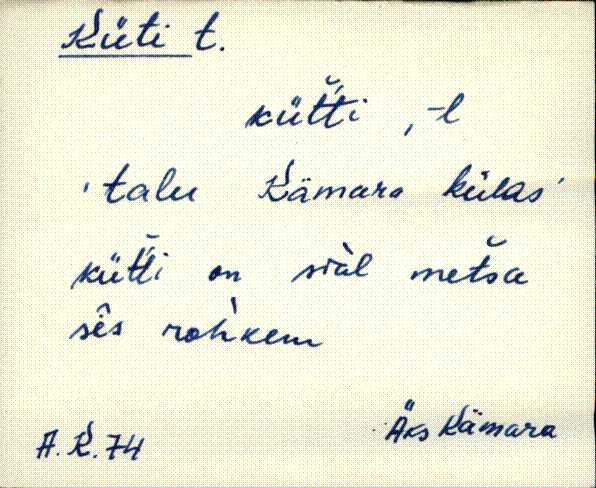 Küti t.
küt̆ti, -l
'talu Kämara külas'
küt̆ti on siàl metsa
sês roh̀kem
A.K.74 Äks Kämara